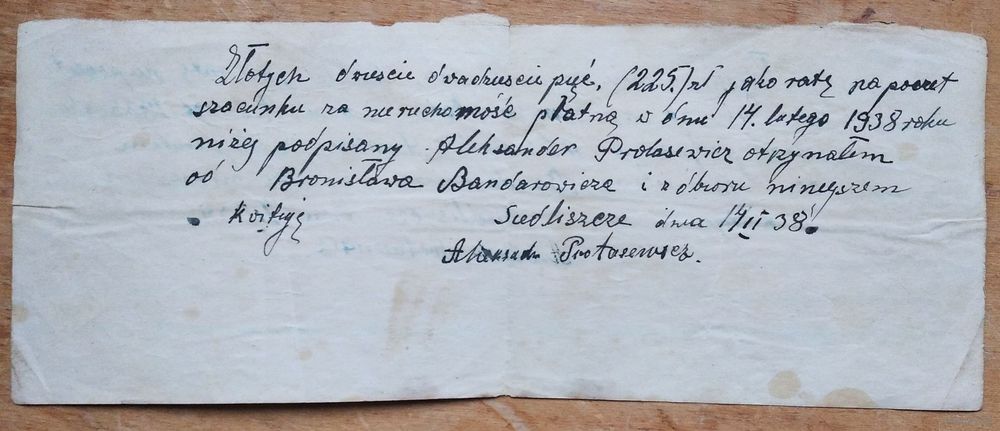 Złotych dwieście dwadzieścia pięć, (225.) zł jako ratę na poczet
szacunku za nieruchomość płatną w dniu 14. lutego 1938 roku
niżej podpisany Aleksander Protasewicz otrzymałem
od Bronisława Bandarowicza i z odbioru niniejszem
kwituję Siedliszcze dnia 14 II 38.
Aleksander Protasewicz.